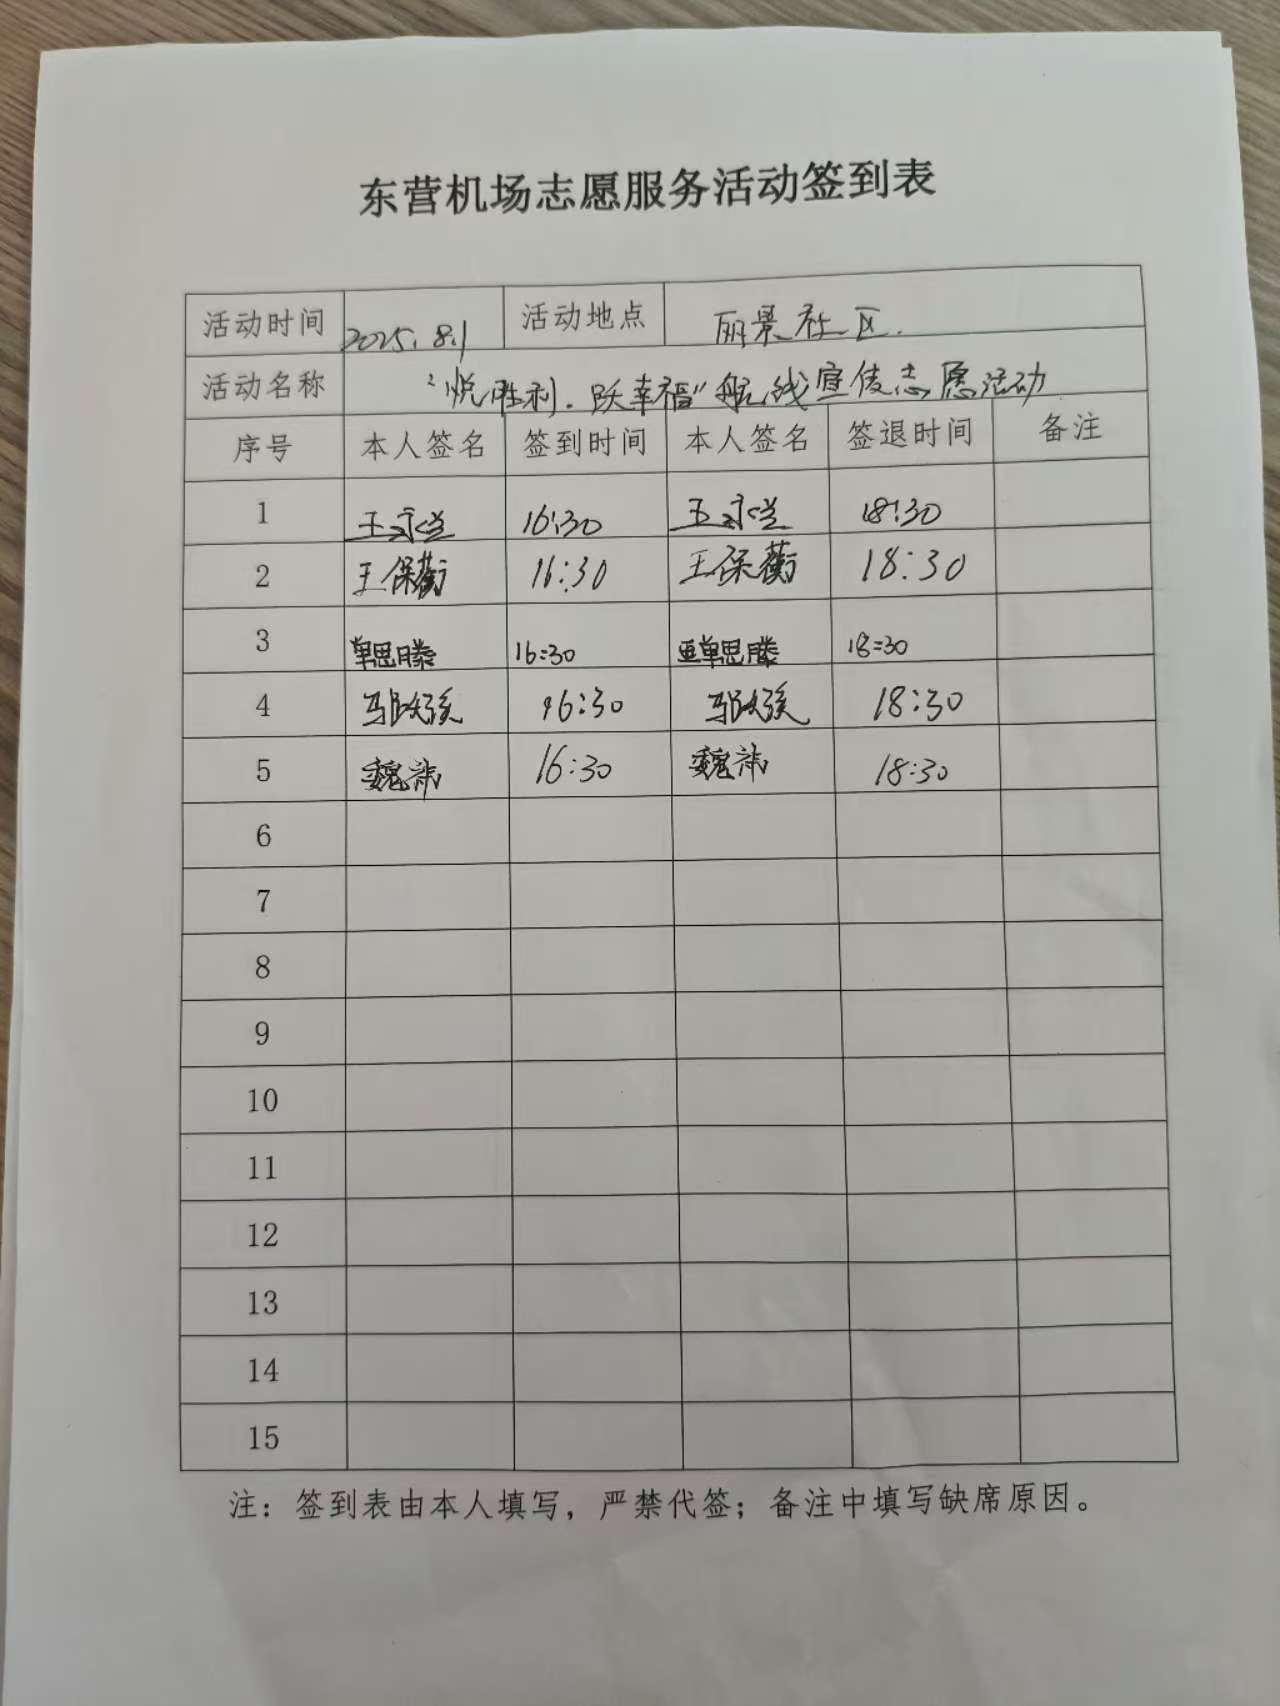 东营机场志愿服务活动签到表
活动时间 2025.8.1 活动地点 丽景社区.
活动名称 "悦胜利.跃幸福"航线宣传志愿活动
序号 本人签名 签到时间 本人签名 签退时间 备注
1 王永兰 16:30 王永兰 18:30
2 王保蘅 16:30 王保蘅 18:30
3 单思滕 16:30 单思滕 18:30
4 16:30 18:30
5 魏祎 16:30 魏祎 18:30
6
7
8
9
10
11
12
13
14
15
注：签到表由本人填写，严禁代签；备注中填写缺席原因。